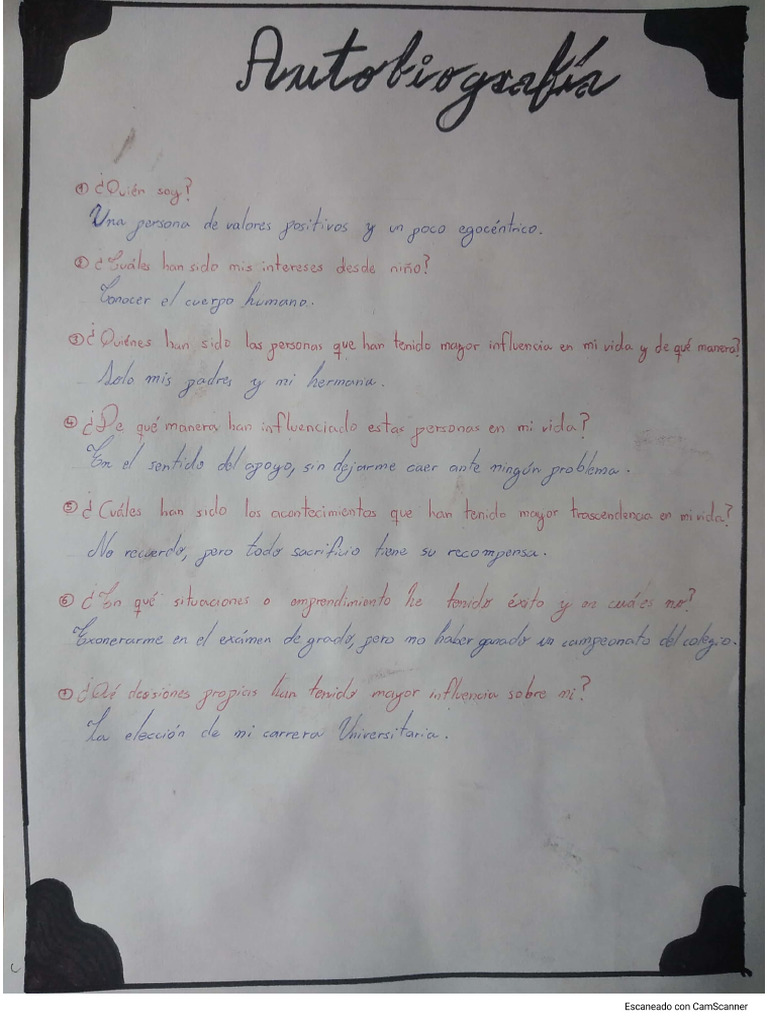 Autobiografía
① ¿Quién soy?
Una persona de valores positivos y un poco egocéntrico.
② ¿Cuáles han sido mis intereses desde niño?
Conocer el cuerpo humano.
③ ¿Quiénes han sido las personas que han tenido mayor influencia en mi vida y de qué manera?
Solo mis padres y mi hermana.
④ ¿De qué manera han influenciado estas personas en mi vida?
En el sentido del apoyo, sin dejarme caer ante ningún problema.
⑤ ¿Cuáles han sido los acontecimientos que han tenido mayor trascendencia en mi vida?
No recuerdo, pero todo sacrificio tiene su recompensa.
⑥ ¿En qué situaciones o emprendimiento he tenido éxito y en cuáles no?
Exonerarme en el exámen de grado, pero no haber ganado un campeonato del colegio.
⑦ ¿Qué decisiones propias han tenido mayor influencia sobre mi?
La elección de mi carrera Universitaria.
Escaneado con CamScanner